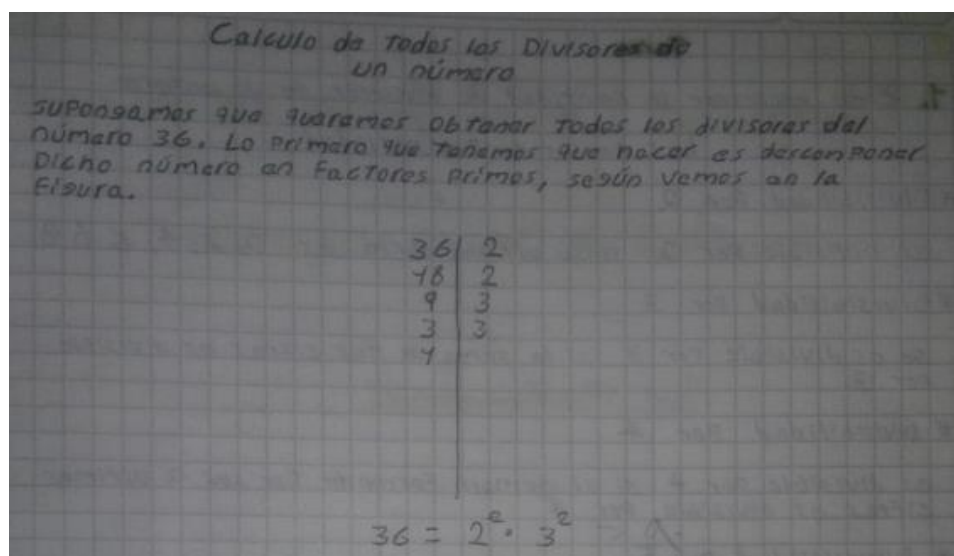 Calculo de Todos los Divisores de
un número
supongamos que queremos obtener Todos los divisores del
número 36. Lo primero que Tenemos que hacer es descomponer
Dicho número en Factores primos, según vemos en la
Figura.
36 | 2
18 | 2
9 | 3
3 | 3
1
36 = 2² · 3²